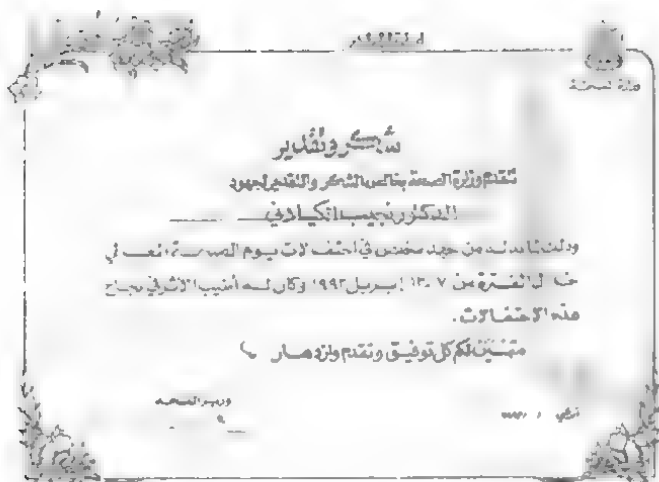 وزارة الصحة
شكر وتقدير
تتقدم وزارة الصحة بخالص الشكر والتقدير لجهود
الدكتور نجيب الكيلاني
وذلك لما بذله من جهد مخلص في احتفالات يوم الصحة العالمي
خلال الفترة من ٧ـ١٣ إبريل ١٩٩٢ وكان له أطيب الأثر في نجاح
هذه الاحتفالات .
متمنين لكم كل توفيق وتقدم وازدهار
وزير الصحة